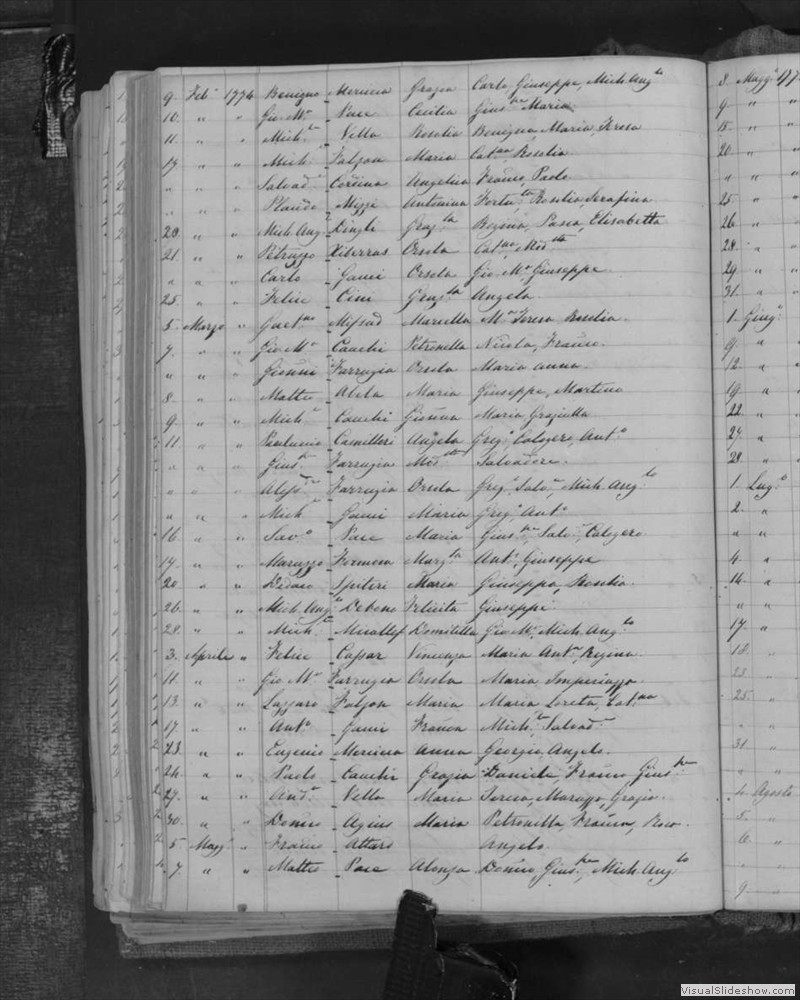 9. Feb. 1774 Benigno Mericca Grazia Carlo, Giuseppe, Mich. Ang.lo
10. " " Gio M.a Pace Cecilia Gius.pa Maria
11. " " Mich. Vella Rosalia Benigna Maria, Teresa
17. " " Mich. Falzon Maria Cat.na Rosalia
" " " Salvad. Angelica Franco, Paolo
" " " Placido Mizzi Antonina Rosalia, Serafina
20. " " Mich. Ang. Dingli Graz.la Regina, Pasca, Elisabetta
21. " " Petruzzo Xiberras Orsola Cat.na
" " " Carlo Gauci Orsola Gio M.a Giuseppe
25. " " Felice Cini Graz.lla Angela
5. Marzo " Gaet.no Mifsud Mariella M.a Teresa Rosalia
7. " " Gio M.a Cauchi Petronella Nicola, Franco
" " " Farrugia Orsola Maria Anna
8. " " Matteo Abela Maria Giuseppe, Martino
9. " " Mich. Cauchi Gioanna Maria Graziulla
11. " " Camilleri Angela Greg. Calogero, Ant.o
" " " Gius. Farrugia Salvadore
" " " Farrugia Orsola Greg. Salv. Mich. Ang.lo
" " " Mich. Gauci Maria Greg. Ant.o
16. " " Sav.o Pace Maria Gius. Salv. Calogero
19. " " Maruzzo Formosa Marg.ta Ant. Giuseppe
20. " " Spiteri Maria Giuseppa, Rosalia
26. " " Mich. Ang. Debono Felicita Giuseppe
28. " " Mich. Micallef Domitilla Gio M.a Mich. Ang.lo
3. Aprile " Felice Cassar Vincenza Maria Ant. Regina
11. " " Gio M.a Farrugia Orsola Maria, Imperiuzza
13. " " Lazzaro Falzon Maria Maria Loreta, Cat.na
17. " " Ant.o Gauci Franca Mich. Salvad.
23. " " Eugenio Mericca Anna Georgio, Angelo
24. " " Paolo Cauchi Grazia Daniele, Franco Gius.pe
27. " " And. Vella Maria Teresa, Maruzza, Grazia
30. " " Agius Maria Petronella, Franca, Rosa
5. Magg. " Franco Attard Angelo
7. " " Matteo Pace Alonza Gius.pe, Mich. Ang.lo
8. Magg. 177
9 " "
15. " "
20. " "
" " "
25. " "
26. " "
28. "
29. " "
31. "
1. Giug.
9. "
12. "
19. "
22. "
27. "
28. "
1. Lug.
2. "
" "
4. "
16. "
" "
17. "
18.
23.
25.
31.
4. Agosto
5. "
6. "
9. "
VisualSlideshow.com